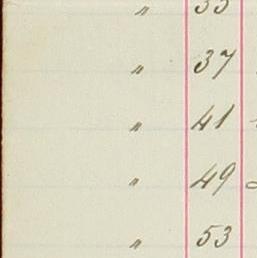 " 33
" 37
" 41
" 49
" 53